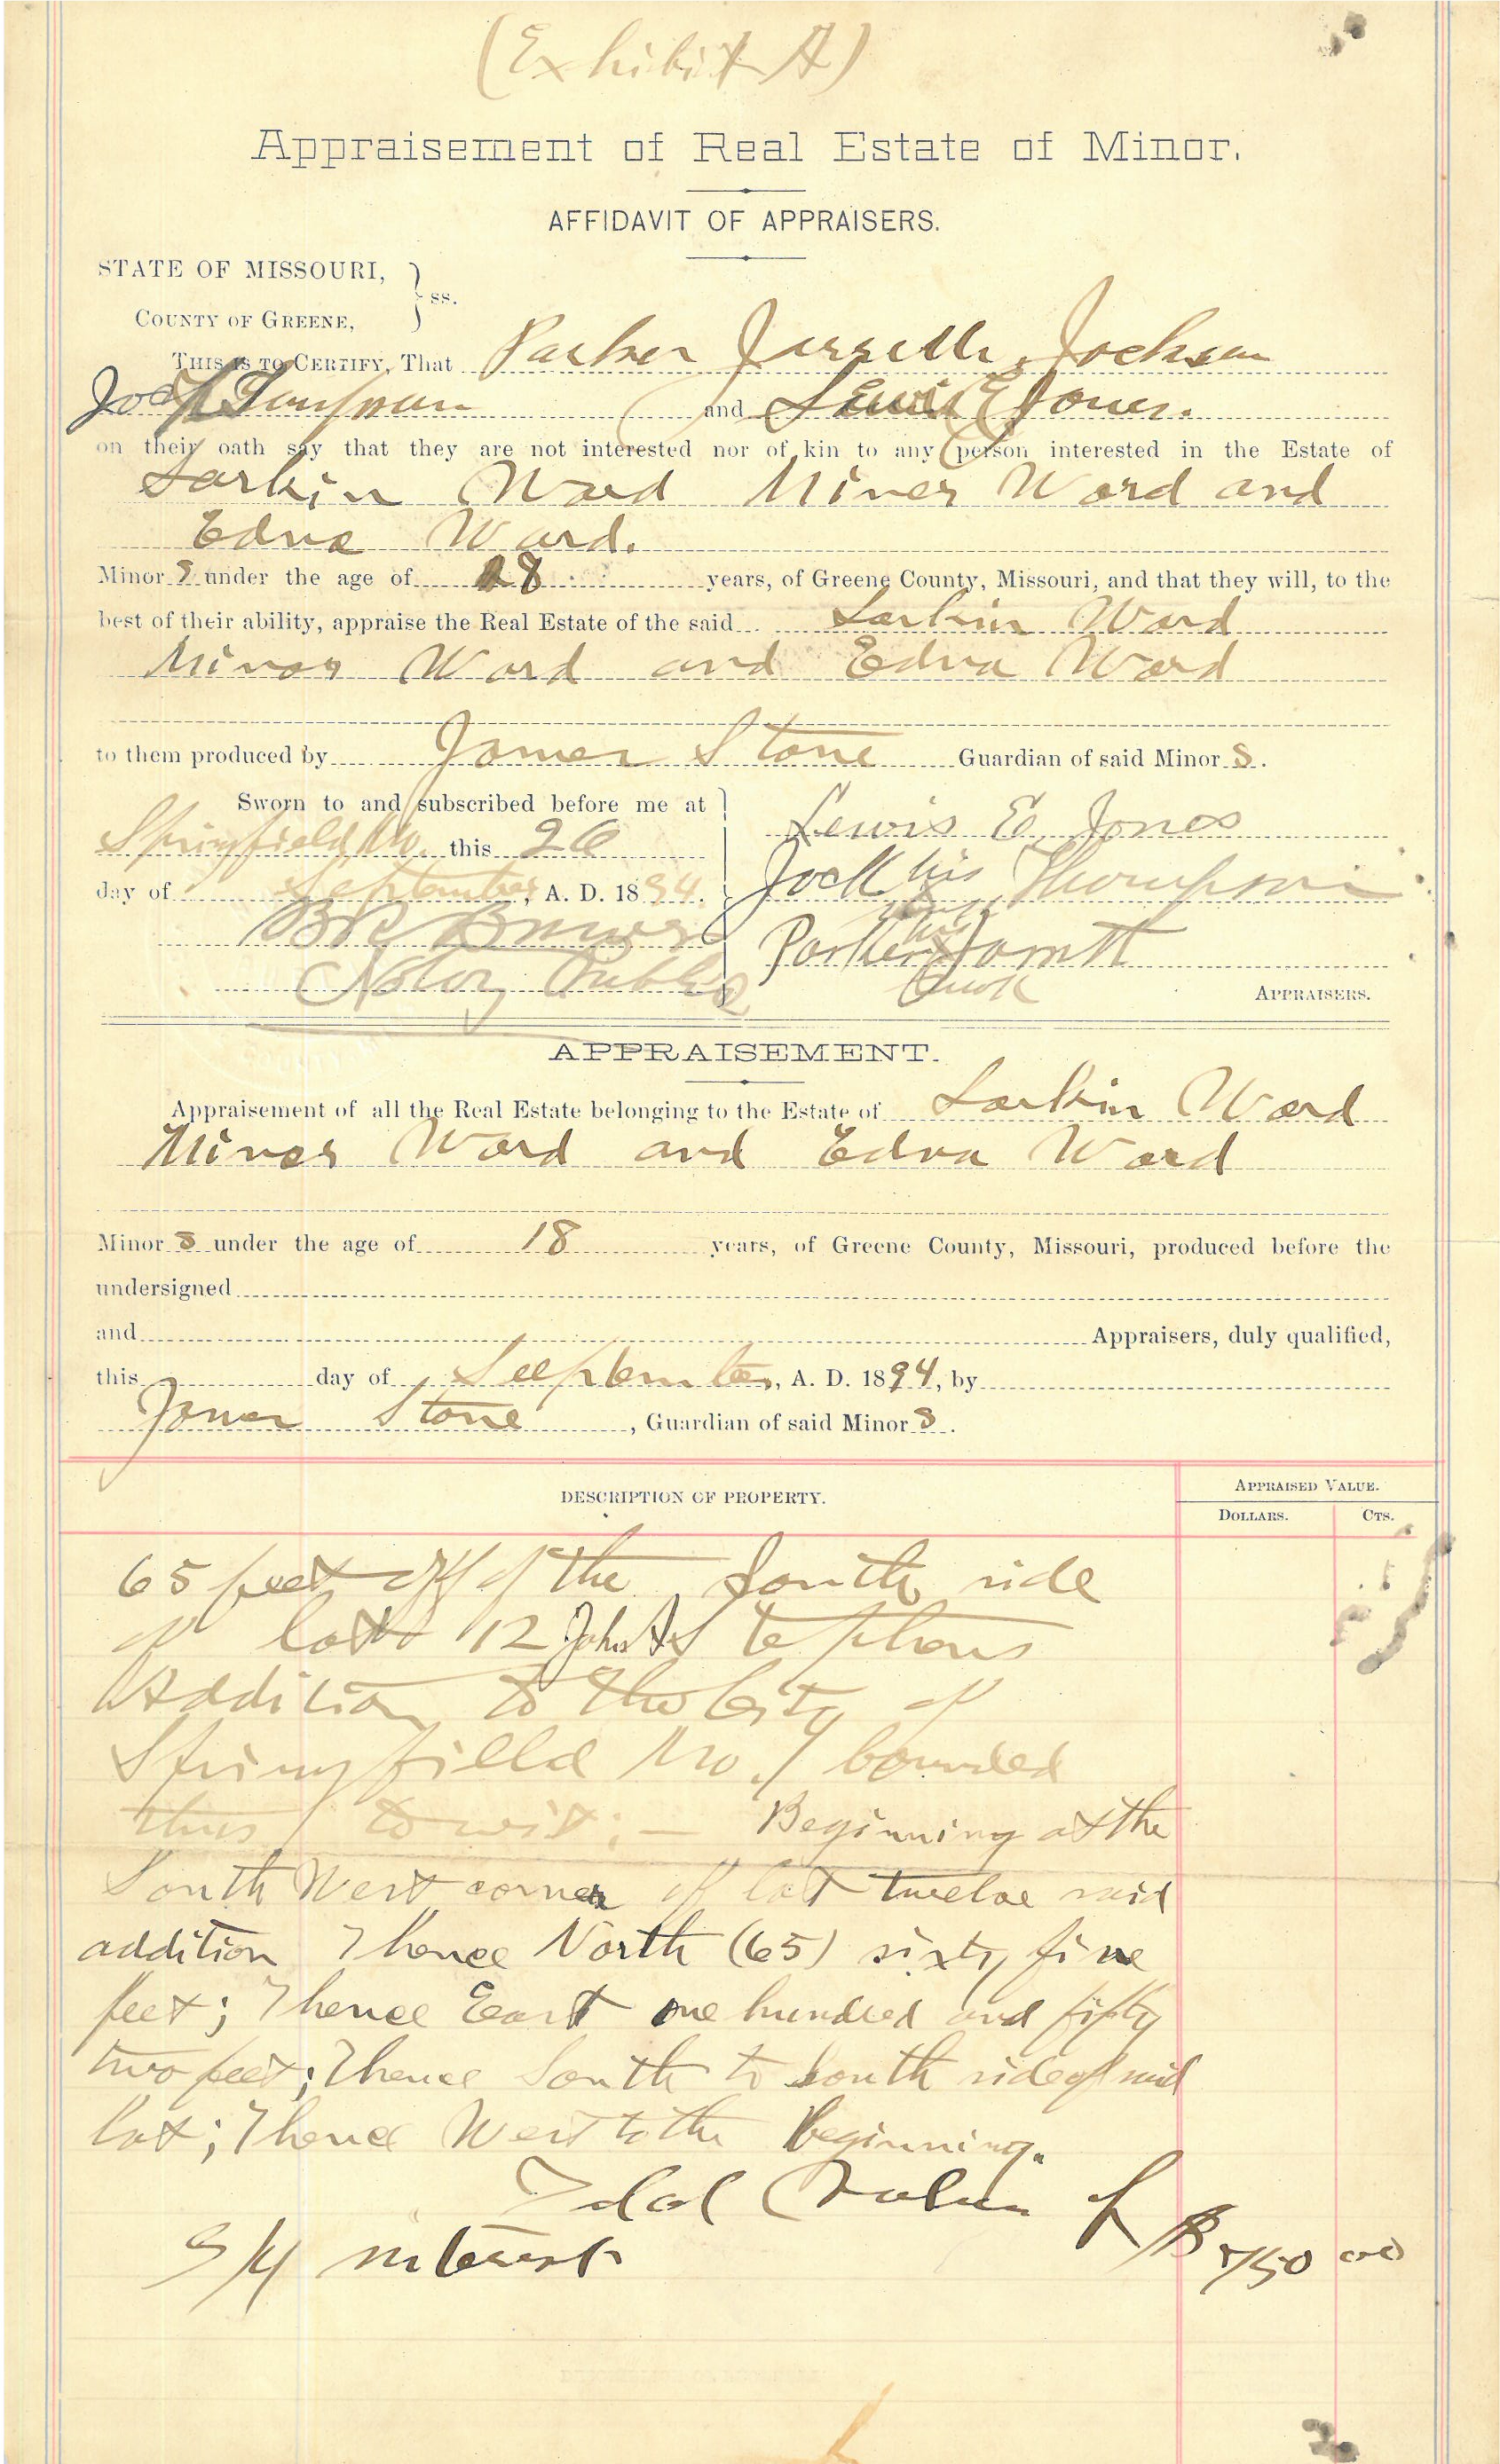 (Exhibit A)
Appraisement of Real Estate of Minor.
AFFIDAVIT OF APPRAISERS.
STATE OF MISSOURI,
COUNTY OF GREENE, } ss.
THIS IS TO CERTIFY, That Parker Jarrett, Jackson
and Lewis E Jones.
on their oath say that they are not interested nor of kin to any person interested in the Estate of
Larkin Ward Minor Ward and
Edna Ward.
Minor s under the age of 18 years, of Greene County, Missouri, and that they will, to the
best of their ability, appraise the Real Estate of the said Larkin Ward
Minor Ward and Edna Ward
to them produced by James Stone Guardian of said Minor s.
Sworn to and subscribed before me at
Springfield Mo. this 26
day of September, A. D. 1894.
Notary Public
Lewis E. Jones
Jack his Thompson
his
Parker Jarrett
mark
APPRAISERS.
APPRAISEMENT.
Appraisement of all the Real Estate belonging to the Estate of Larkin Ward
Minor Ward and Edna Ward
Minor s under the age of 18 years, of Greene County, Missouri, produced before the
undersigned
and Appraisers, duly qualified,
this day of September, A. D. 1894, by
James Stone, Guardian of said Minor s.
DESCRIPTION OF PROPERTY.
APPRAISED VALUE.
DOLLARS. CTS.
65 feet off of the South side
of lot 12 John A Stephens
Addition to the City of
Springfield Mo. bounded
thus towit: — Beginning at the
South West corner of lot twelve said
addition Thence North (65) sixty five
feet; Thence East one hundred and fifty
two feet; Thence South to South side of said
lot; Thence West to the Beginning.
Total Value of
interest $750 00